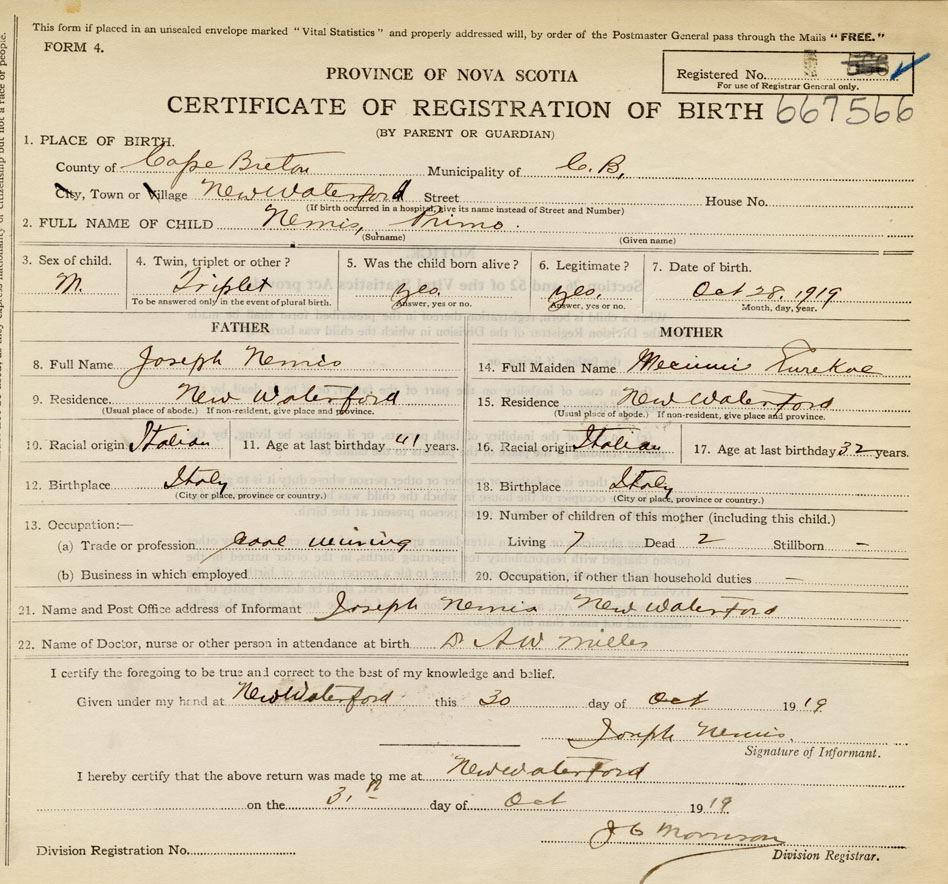 This form if placed in an unsealed envelope marked "Vital Statistics" and properly addressed will, by order of the Postmaster General pass through the Mails "FREE."
FORM 4.
PROVINCE OF NOVA SCOTIA
Registered No.
For use of Registrar General only.
CERTIFICATE OF REGISTRATION OF BIRTH 667566
(BY PARENT OR GUARDIAN)
1. PLACE OF BIRTH.
County of Cape Breton Municipality of C.B.
City, Town or Village New Waterford Street House No.
(If birth occurred in a hospital, give its name instead of Street and Number)
2. FULL NAME OF CHILD Nemis, Primo.
(Surname) (Given name)
3. Sex of child. 4. Twin, triplet or other? 5. Was the child born alive? 6. Legitimate? 7. Date of birth.
M. Triplet yes yes. Oct 28, 1919
To be answered only in the event of plural birth. Answer, yes or no. Answer, yes or no. Month, day, year.
FATHER MOTHER
8. Full Name Joseph Nemis 14. Full Maiden Name
9. Residence. New Waterford 15. Residence New Waterford
(Usual place of abode.) If non-resident, give place and province. (Usual place of abode.) If non-resident, give place and province.
10. Racial origin Italian 11. Age at last birthday 41 years. 16. Racial origin Italian 17. Age at last birthday 32 years.
12. Birthplace Italy 18. Birthplace Italy
(City or place, province or country.) (City or place, province or country.)
13. Occupation:— 19. Number of children of this mother (including this child.)
(a) Trade or profession coal mining Living 7 Dead 2 Stillborn —
(b) Business in which employed 20. Occupation, if other than household duties —
21. Name and Post Office address of Informant Joseph Nemis New Waterford
22. Name of Doctor, nurse or other person in attendance at birth Dr A W Miller
I certify the foregoing to be true and correct to the best of my knowledge and belief.
Given under my hand at New Waterford this 30 day of Oct 1919.
Joseph Nemis.
Signature of Informant.
I hereby certify that the above return was made to me at New Waterford
on the 31st day of Oct 1919
J C Morrison
Division Registration No. Division Registrar.